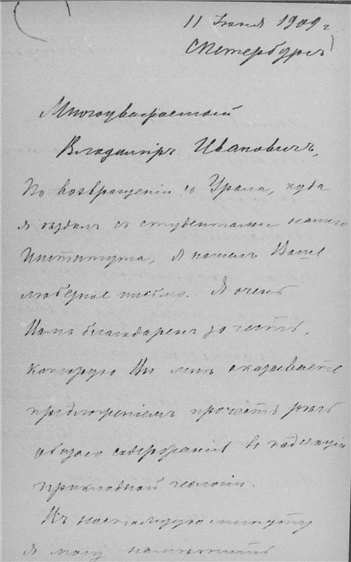 11 Іюня 1909 г.
С.Петербургъ
Многоуважаемый
Владиміръ Ивановичъ,
По возвращеніи съ Урала, куда
я ѣздилъ съ студентами нашего
Института, я нашелъ Ваше
любезное письмо. Я очень
Вамъ благодаренъ за честь,
которую Вы мнѣ оказываете
предложеніемъ прочесть рѣчь
общаго содержанія въ
прикладной
Въ настоящую минуту
я могу намѣтить